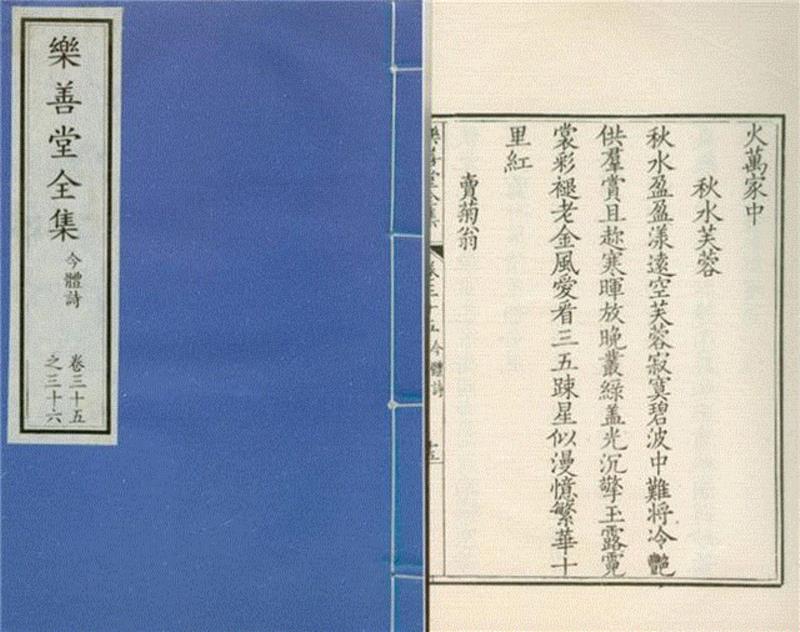 樂善堂全集
今體詩
卷三十五
之三十六
火萬家中
秋水芙蓉
秋水盈盈漾遠空芙蓉寂寞碧波中難將冷艶
供羣賞且趂寒暉放晚叢綠盖光沉擎玉露霓
裳彩褪老金風愛看三五踈星似漫憶繁華十
里紅
賣菊翁
樂善堂全集
卷三十五今體詩
十五